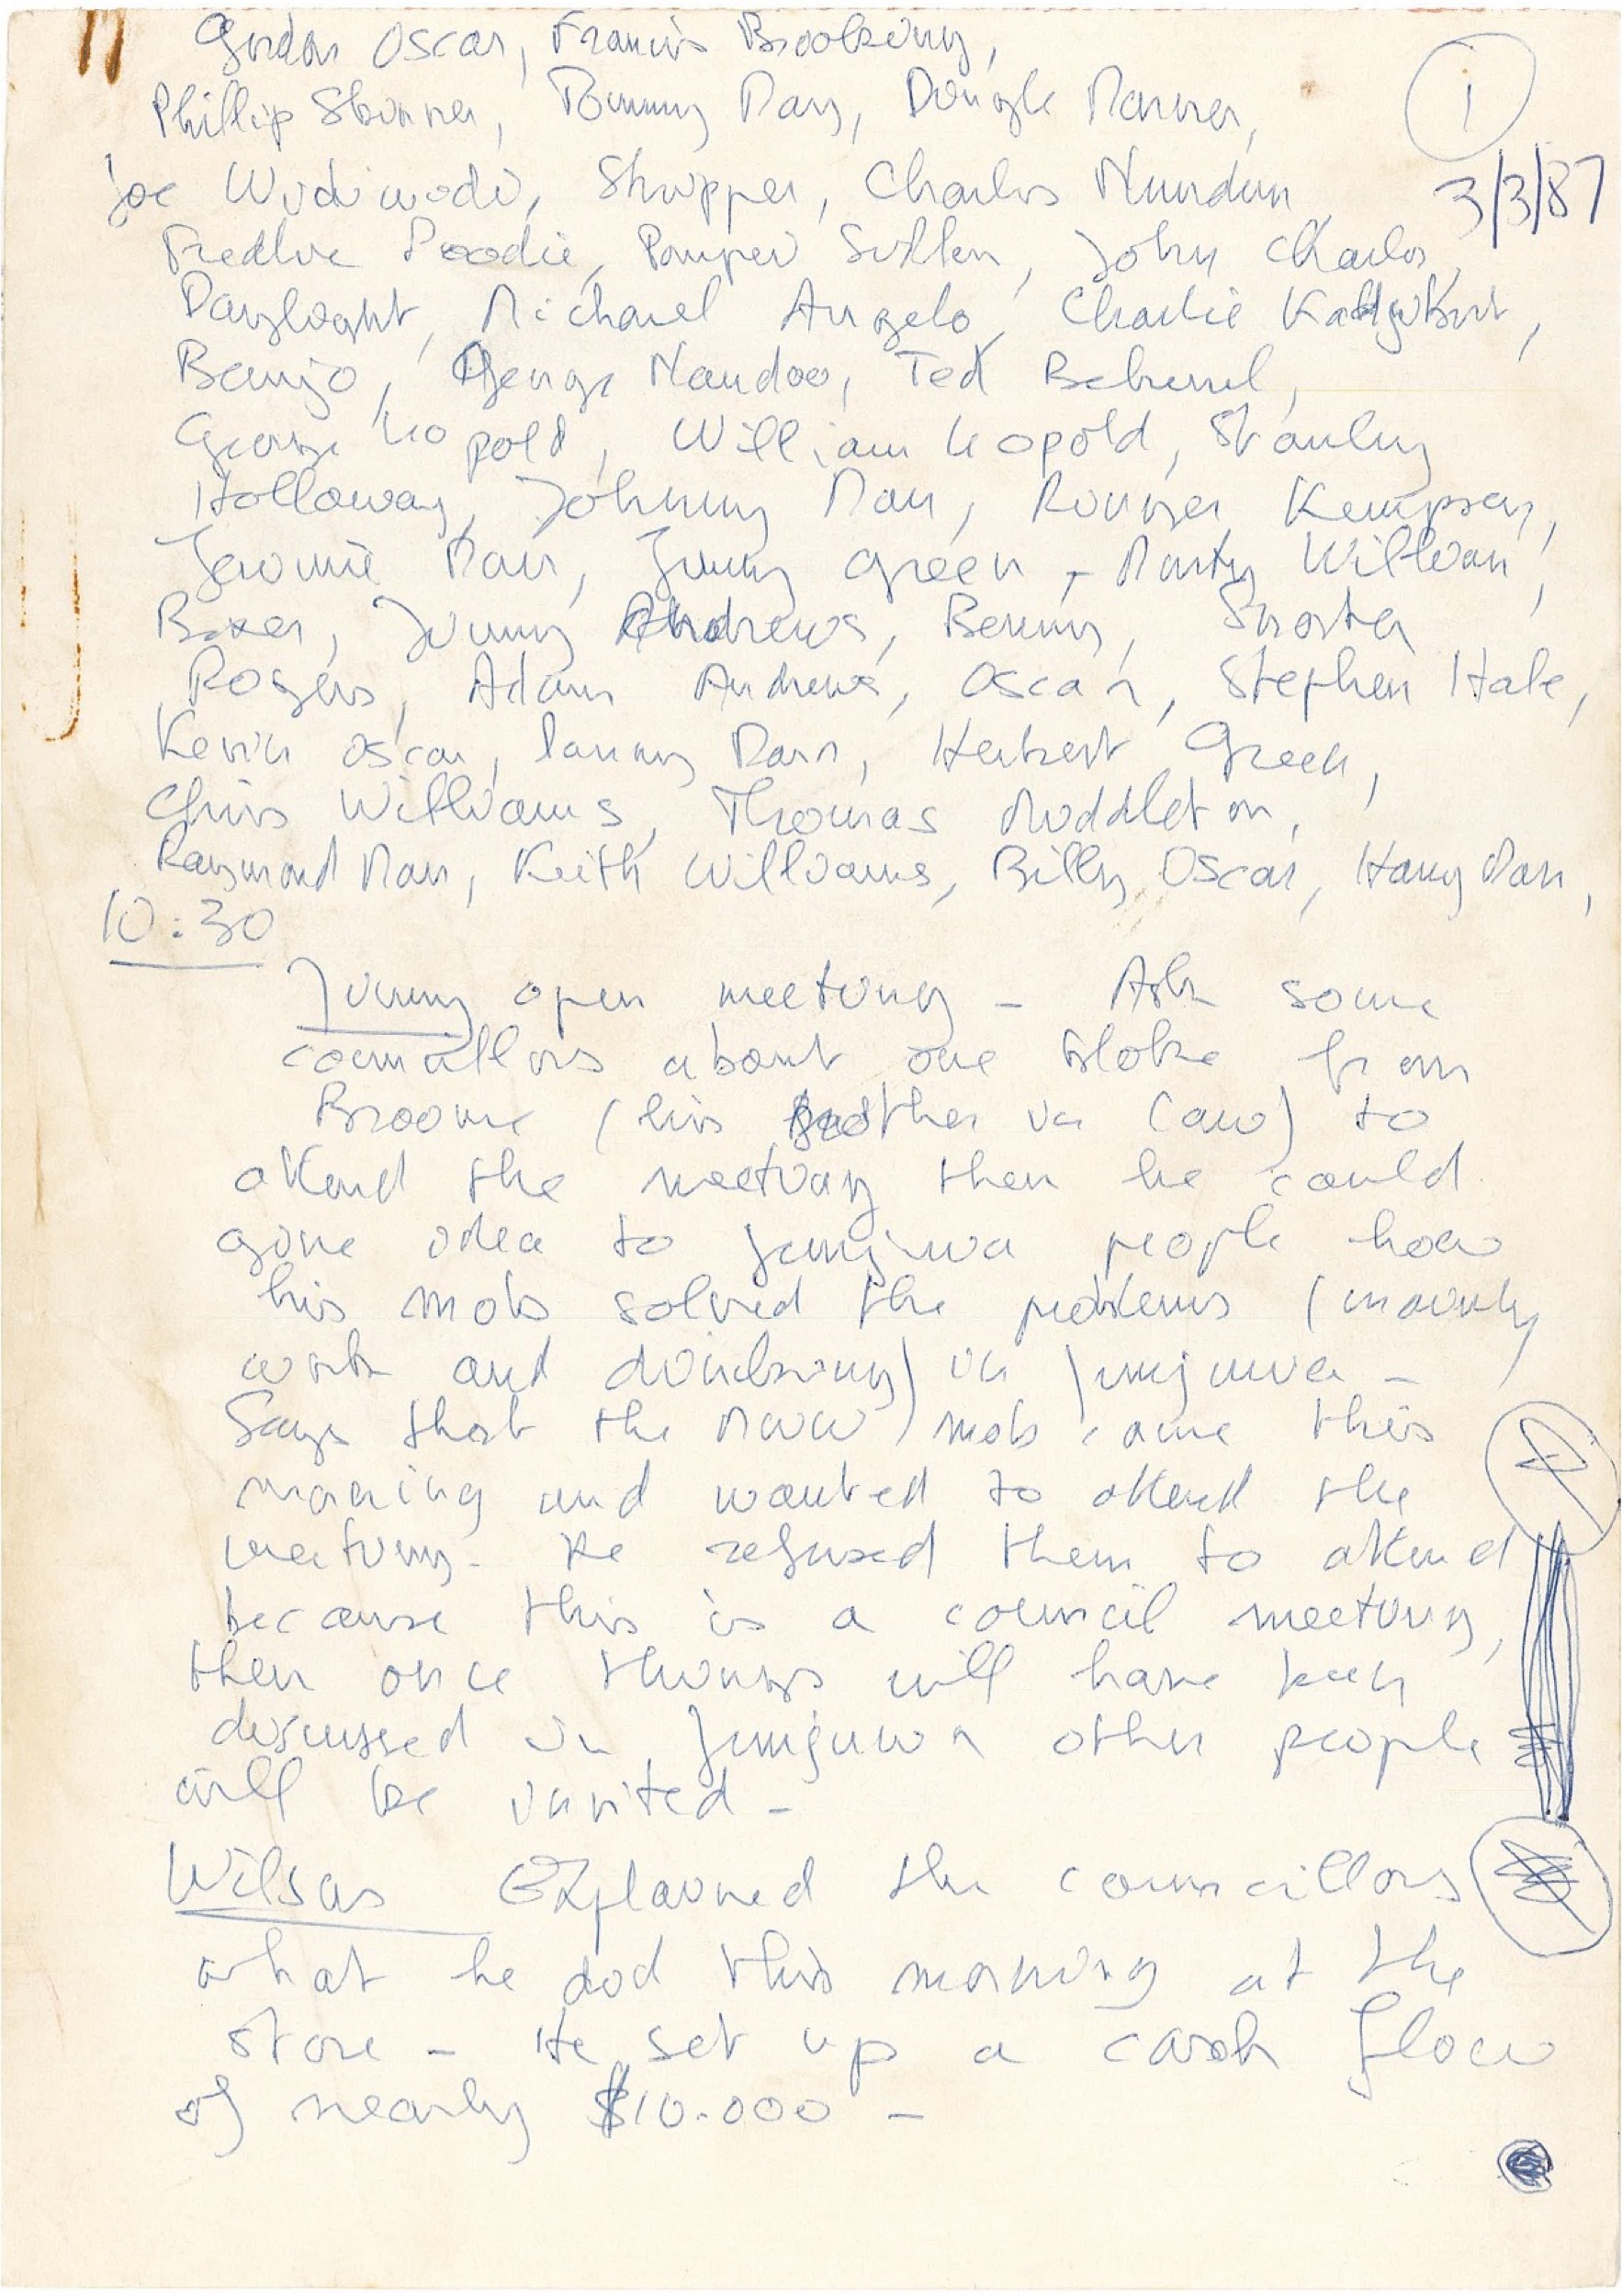 Gordon Oscar, Francis Brooking,
Phillip Skinner, Tommy May, Dougle Manner,
1
Joe Widiwodi, Skipper, Charles Nundun
3/3/87
Fredlie Poodie, Pompei Sullen, John Charles,
Daylight, Michael Angelo, Charlie
Banjo, George Nandoo, Ted Beharrel,
George Leopold, William Leopold, Stanley
Holloway, Johnny Marr, Ranger Kempsey,
Jeromie Marr, Jimmy Green, Marty William,
Boxer, Jimmy Andrews, Benny, Snorter
Rogers, Adam Andrews, Oscar, Stephen Hale,
Kevin Oscar, Danny Marr, Herbert Green,
Chris Williams, Thomas Middleton,
Raymond Marr, Keith Williams, Billy Oscar, Harry Marr,
10:30
Jimmy open meeting - Ask some
councillors about one bloke from
Broome (his brother in law) to
attend the meeting then he could
give idea to Junjuwa people how
his mob solved the problems (mainly
work and drinking) in Junjuwa -
Says that the mob came this
morning and wanted to attend the
meeting - He refused them to attend
because this is a council meeting,
then once things will have been
discussed in Junjuwa other people
will be invited -
Wilson Explained the councillors
what he did this morning at the
store - He set up a cash flow
of nearly $10.000 -